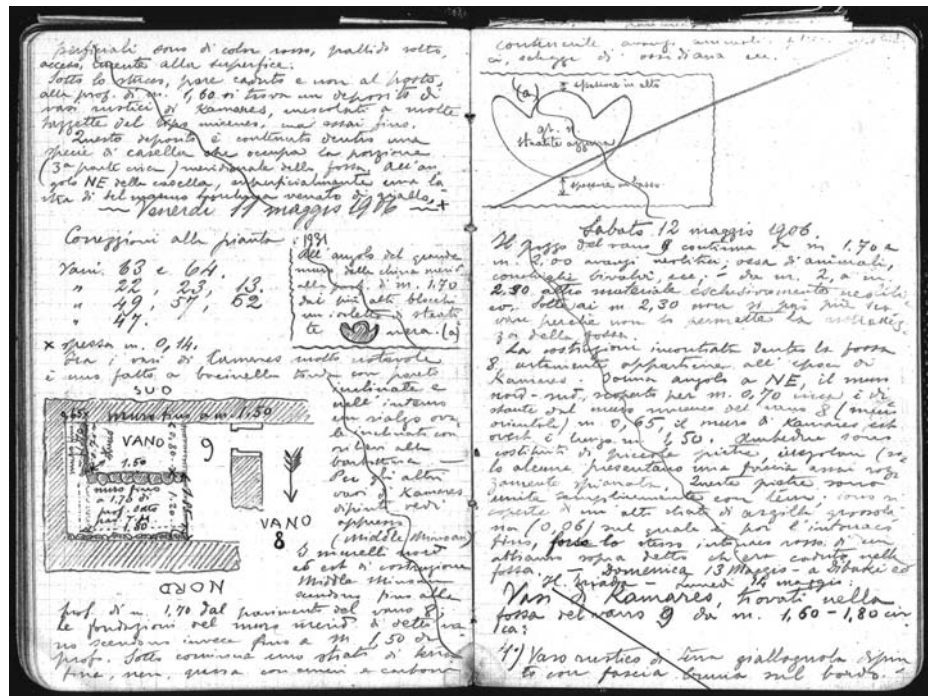 perficiali sono di color rosso, pallido sotto,
acceso, cruento alla superficie.
Sotto lo stucco, pare caduto e non al posto,
alla prof. di m. 1,60 si trova un deposito di
vasi rustici di Kamares, mescolati a molte
tazzette del tipo micenea, ma assai fine.
Questo deposito è contenuto dentro una
specie di casella che occupa la porzione
(3ª parte circa) meridionale della fossa. All'an-
golo NE della casella, superficialmente era la
di bel marmo venato di giallo.
Venerdì 11 maggio 1906
Correzioni alla pianta
Vani. 63 e 64.
" 22, 23, 13.
" 49, 57, 62
" 47.
: 1931
All'angolo del grande
muro della china merid
alla prof. di m. 1.70
dai più alti blocchi
un orletto di steati
te nera. (a)
x spessa m. 0,14.
Fra i vasi di Kamares molto notevole
è uno fatto a bacinella tonda con parete
inclinata e
nell'interno
con rialzo ova
le inclinato con
rilievi alla
barbottina —
Per gli altri
vasi di Kamares
dipinti vedi
appresso
(Middle Minoan)
I muretti nord
ed est di costruzione
Middle Minoan
scendono fino alla
SUD
muro fino a m. 1.50
0,65
VANO
9
1.50
muro fino
a 1.75 di
prof. dato
per
1.80
VANO
8
NORD
prof. di m. 1,70 dal pavimento del vano 8.
Le fondazioni del muro merid di detto va-
no scendono invece fino a m 1,50 di
prof. Sotto comincia uno strato di terra
fina, nera, grassa con ceneri e carboni
contenente avanzi animali,
ci, schegge di ossidiana ecc.
(a)
spessore in alto
gr. n.
steatite azzurra
spessore in basso
Sabato 12 maggio 1906.
Il pozzo del vano 9 continua a m. 1.70 a
m. 2,00 avanzi neolitici, ossa di animali,
conchiglie bivalvi, ecc; - da m. 2, a m.
2.30 altro materiale esclusivamente neoliti
co. Sotto ai m 2,30 non si può più sca
vare perchè non lo permette la
za della fossa.
La costruzione incontrata dentro la fossa
8, certamente appartiene all'epoca di
Kamares. Forma angolo a NE, il muro
nord-sud, scoperto per m. 0,70 circa è di
stante dal muro miceneo del vano 8 (muro
orientale) m. 0,65, il muro di Kamares est
ovest è lungo m. 1,50. Ambedue sono
costituiti di piccole pietre, irregolari (so
lo alcune presentano una faccia assai roz
zamente spianata. Queste pietre sono
unite semplicemente con terra: sono ri
coperte di un alto strato di argilla grossola
na (0,06) sul quale è poi l'intonaco
fino, forse lo stesso intonaco rosso di cui
abbiamo sopra detto che era caduto nella
fossa. — Domenica 13 Maggio - a Dibaki ed
H. Triada — Lunedì 14 maggio:
Vasi di Kamares, trovati nella
fossa del vano 9 da m. 1,60 - 1,80 cir
ca:
1°) Vaso rustico di terra giallagnola dipin
to con fascia bruna sul bordo.